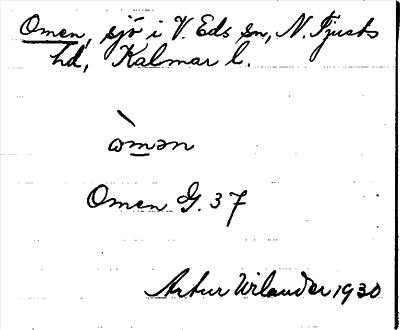 Omen, sjö i V. Eds sn, N. Tjusts
hd, Kalmar l.
ɷ̀mən
Omen G. 37
Artur Wilander 1930